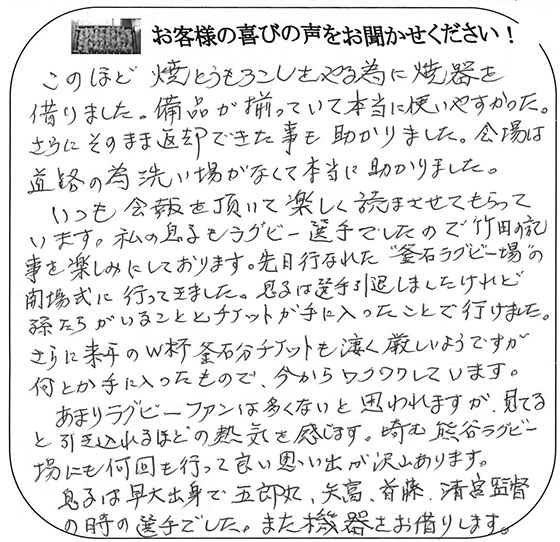 お客様の喜びの声をお聞かせください！
このほど 焼とうもろこしをやる為に焼器を
借りました。備品が揃っていて本当に使いやすかった。
さらにそのまま返却できた事も助かりました。会場は
道路の為洗い場がなくて本当に助かりました。
いつも会報を頂いて楽しく読まさせてもらって
います。私の息子もラグビー選手でしたので竹田の記
事を楽しみにしております。先日行なわれた"釜石ラグビー場"の
開場式に行ってきました。息子は選手引退しましたけれど
孫たちがいることとチケットが手に入ったことで行けました。
さらに来年のW杯釜石分チケットも凄く厳しいようですが
何とか手に入ったもので、今からワクワクしています。
あまりラグビーファンは多くないと思われますが、見てる
と引き込れるほどの熱気を感じます。埼玉 熊谷ラグビー
場にも何回も行って良い思い出が沢山あります。
息子は早大出身で五郎丸、矢富、首藤、清宮監督
の時の選手でした。また機器をお借りします。